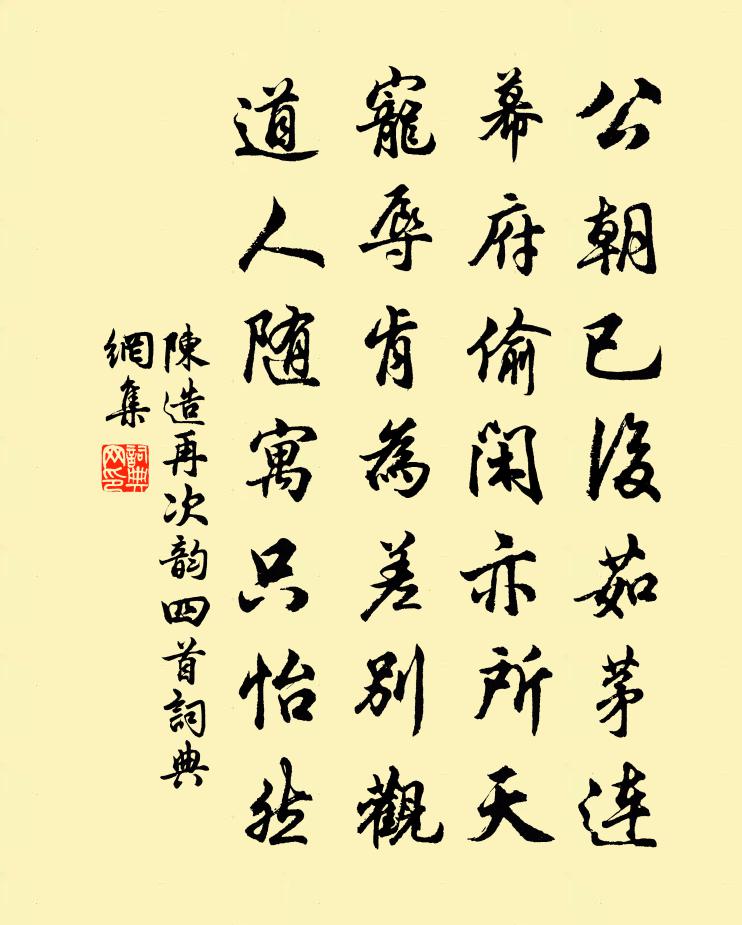 公朝已後茹茅连
幕府偷閑亦所天
寵辱肯為差別觀
道人随寓只怡然
陳造再次韵四首詞典
網集
詞典网印